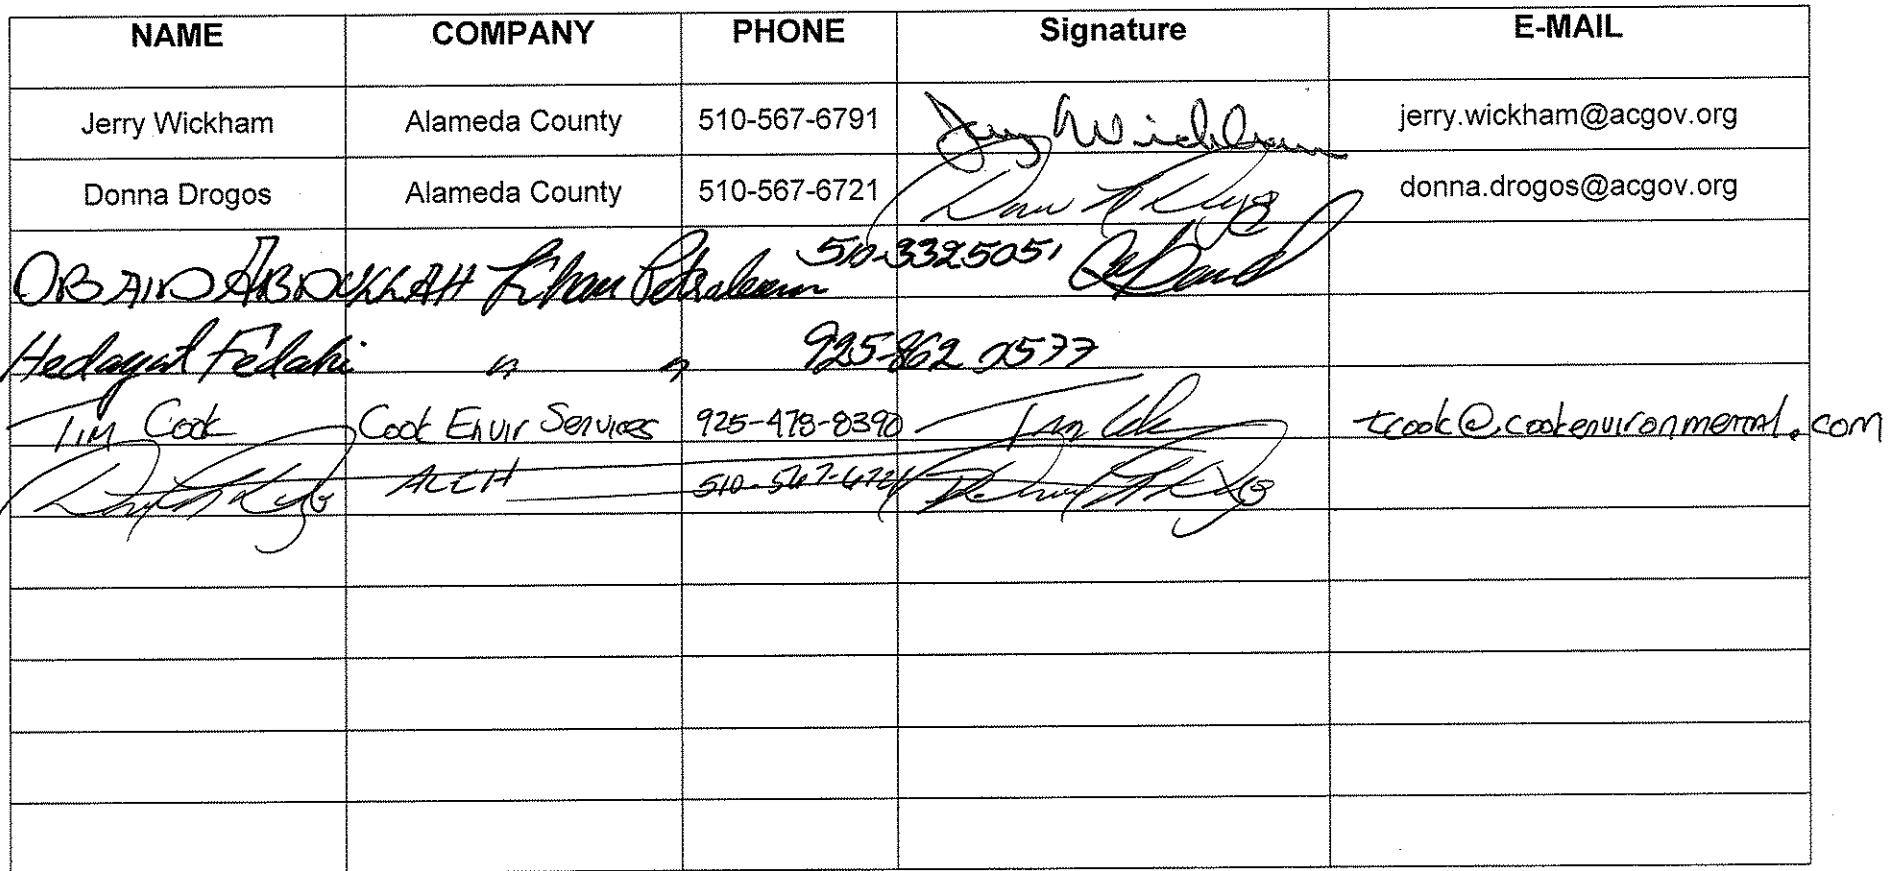 NAME COMPANY PHONE Signature E-MAIL
Jerry Wickham Alameda County 510-567-6791 Jerry Wickham jerry.wickham@acgov.org
Donna Drogos Alameda County 510-567-6721 donna.drogos@acgov.org
OBAID ABDULLAH Petroleum 510-3325051
Hedayat Fedahi " " 925-862 0577
Tim Cook Cook Envir Services 925-478-8390 Tim Cook tcook@cookenvironmental.com
ACEH 510-567-6721